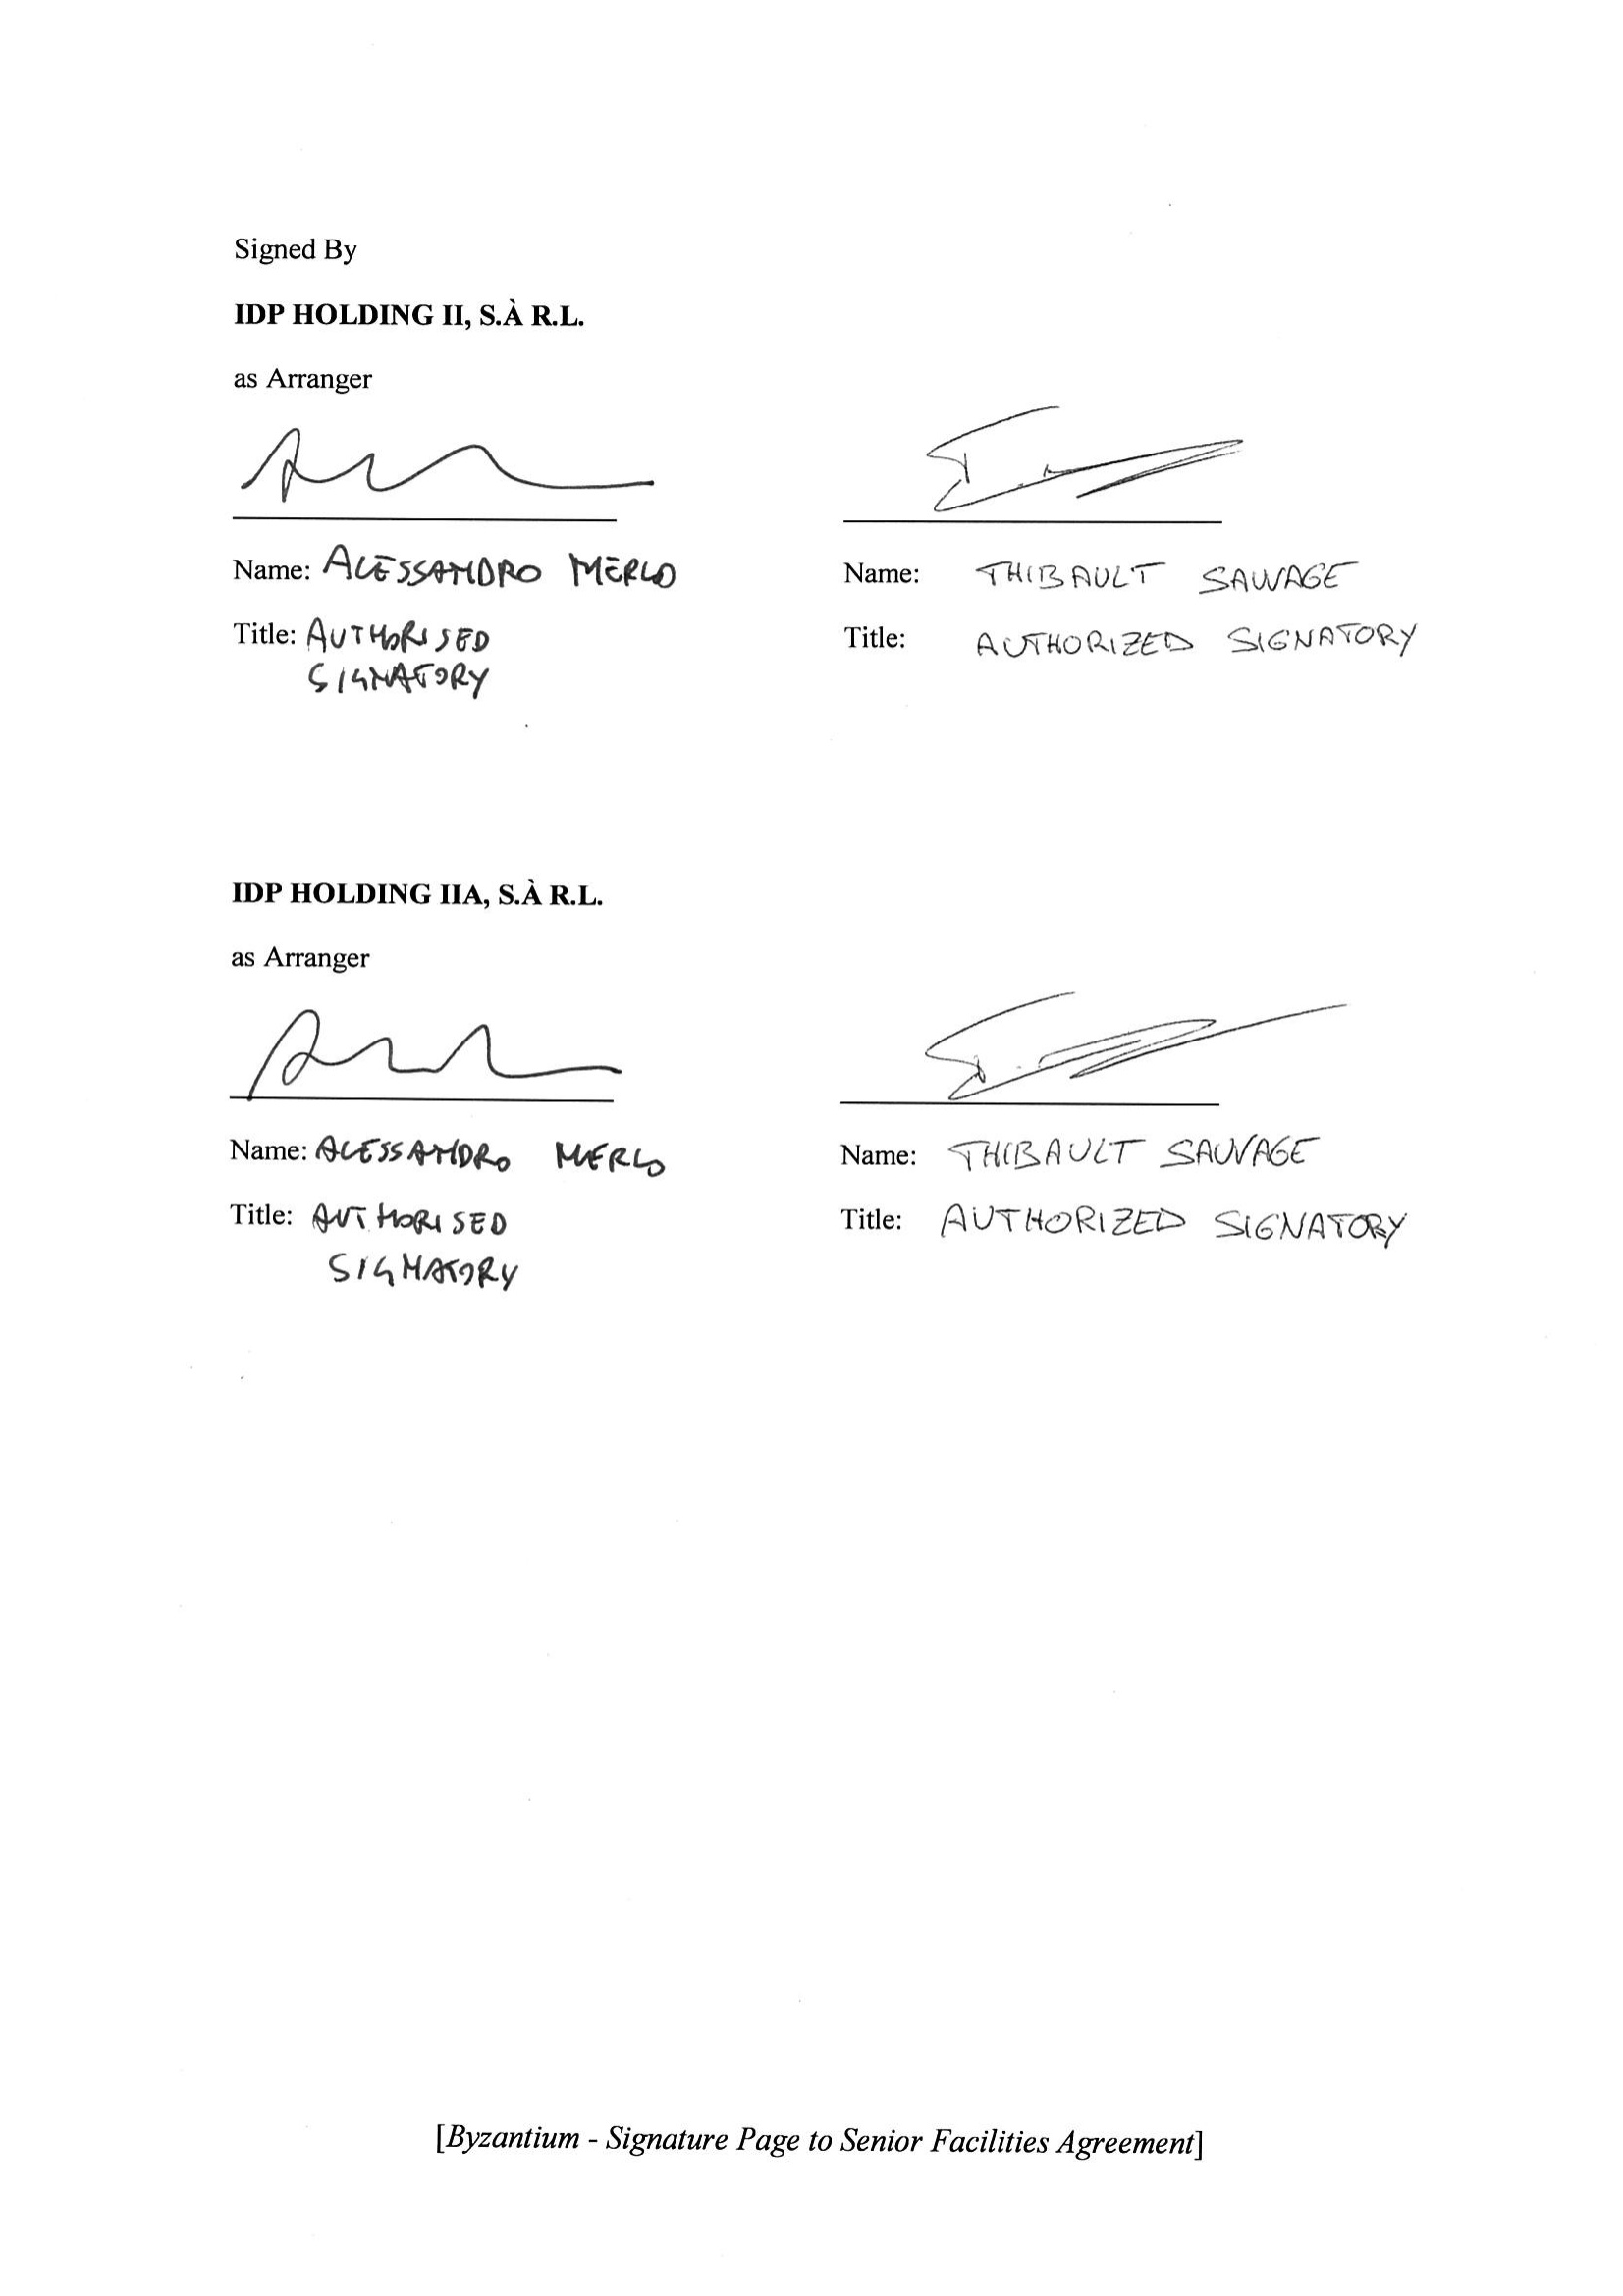 Signed By
IDP HOLDING II, S.À R.L.
as Arranger
Name: ALESSANDRO MERLO
Title: AUTHORISED
SIGNATORY
Name: THIBAULT SAUVAGE
Title: AUTHORIZED SIGNATORY
IDP HOLDING IIA, S.À R.L.
as Arranger
Name: ALESSANDRO MERLO
Title: AUTHORISED
SIGNATORY
Name: THIBAULT SAUVAGE
Title: AUTHORIZED SIGNATORY
[Byzantium - Signature Page to Senior Facilities Agreement]